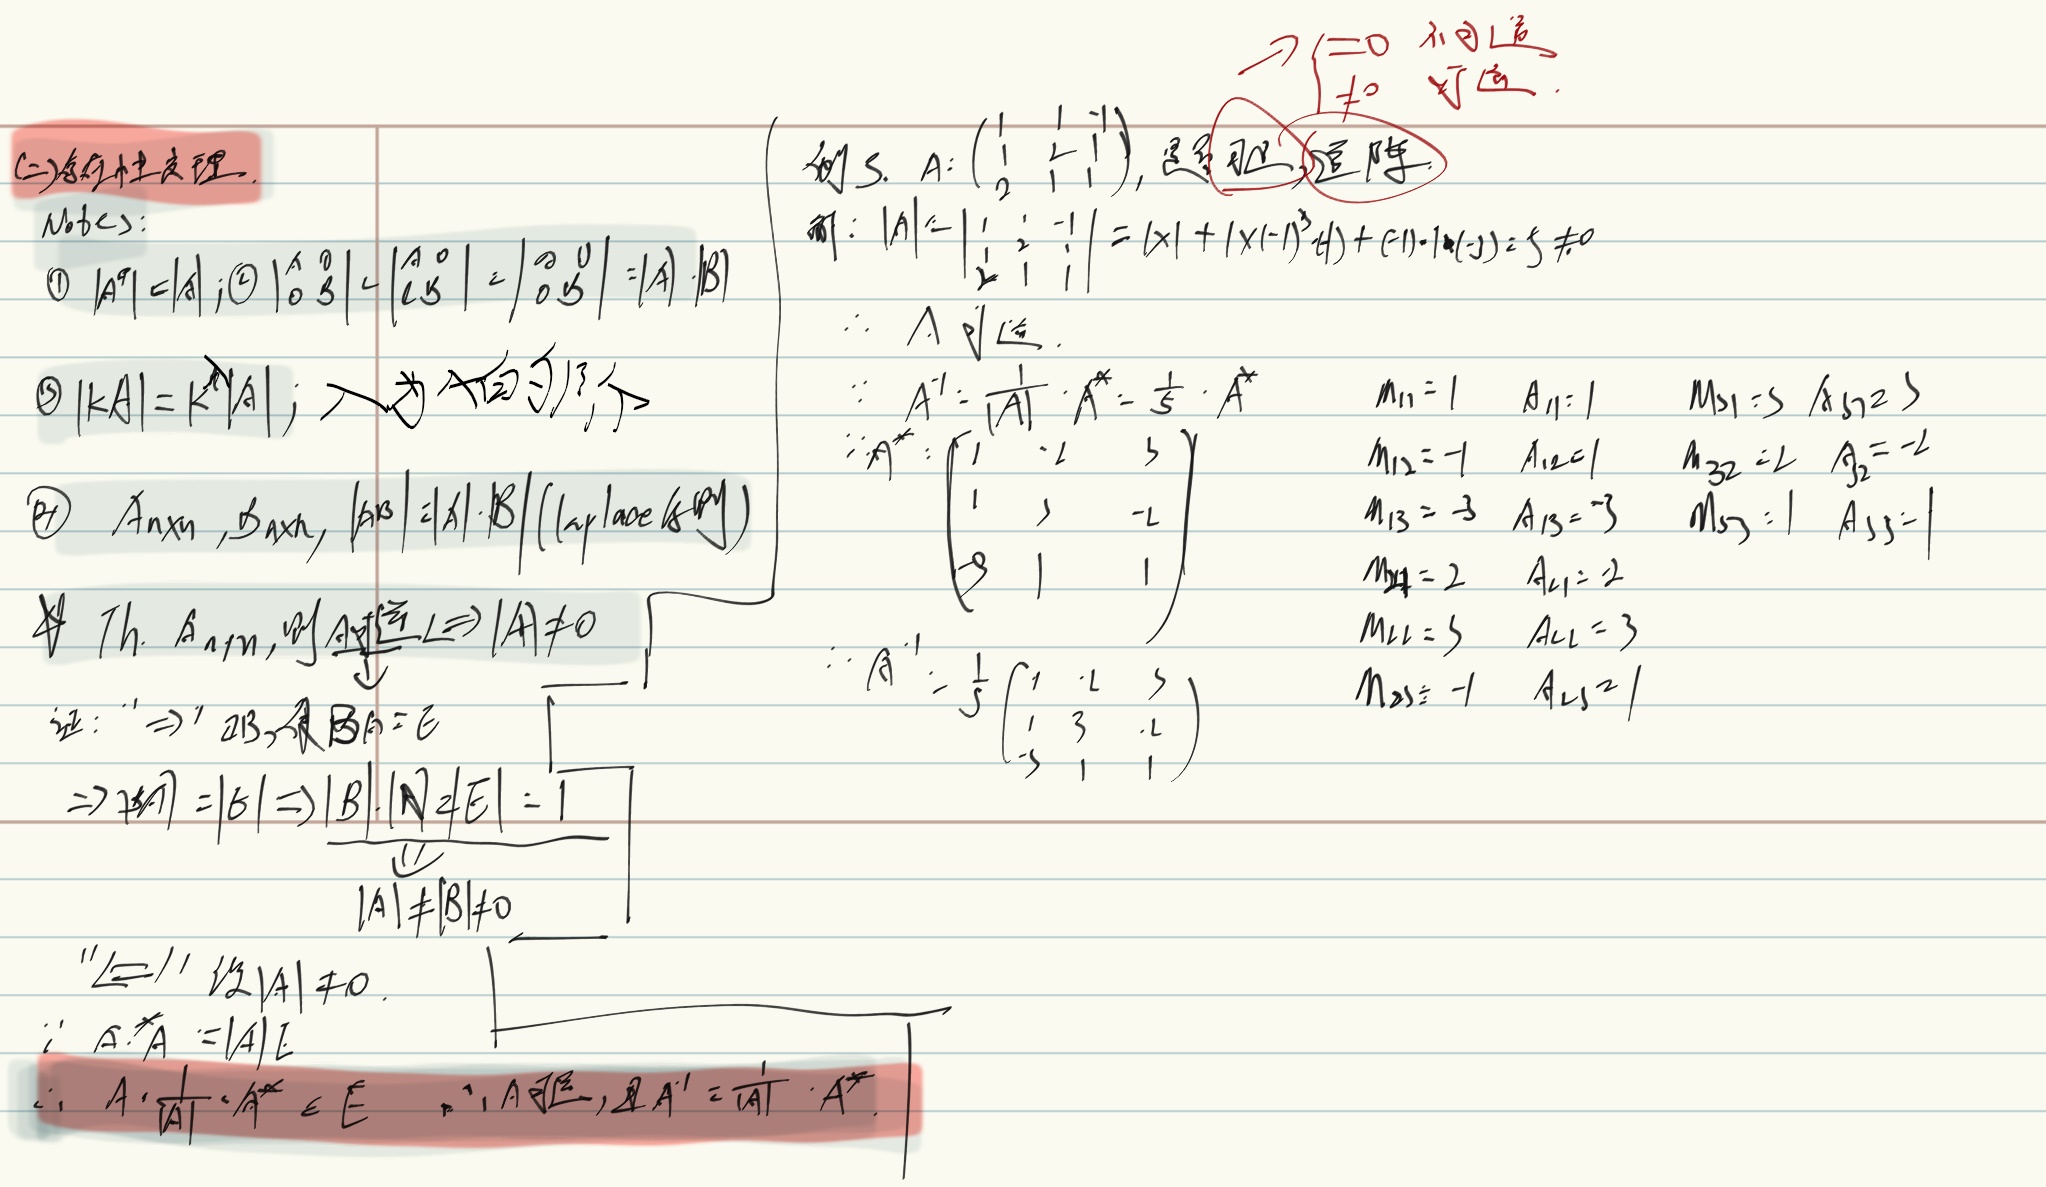 (二)存在性定理.
Notes:
① |Aᵀ| = |A| ; ② |A 0; 0 B| = |A 0; C B| = |A D; 0 B| = |A|·|B|
③ |kA| = kⁿ|A| ;
④ Aₙₓₙ, Bₙₓₙ, |AB| = |A|·|B| (Laplace
Th. Aₙₓₙ, 则A可逆 <=> |A| ≠ 0
证: "=>" ∃B, 使 BA = E
=> |BA| = |E| => |B|·|A| = |E| = 1
|A| ≠ |B| ≠ 0
"<=" 设|A| ≠ 0.
∵ A·*A = |A|E
∴ A·1/|A|·A* = E ∴ A可逆, 且 A⁻¹ = 1/|A| · A*.
=0 不可逆
≠0 可逆.
例5. A: (1 1 -1; 1 2 1; 2 1 1), 是否可逆, 逆阵.
解: |A| = |1 1 -1; 1 2 1; 2 1 1| = 1×1 + 1×(-1)³·(-1) + (-1)·1·(-3) = 5 ≠ 0
∴ A可逆.
∵ A⁻¹ = 1/|A| · A* = 1/5 · A*
∵ A* = (1 -2 3; 1 3 -2; -3 1 1)
∴ A⁻¹ = 1/5 (1 -2 3; 1 3 -2; -3 1 1)
M₁₁ = 1 A₁₁ = 1 M₃₁ = 3 A₃₁ = 3
M₁₂ = -1 A₁₂ = 1 M₃₂ = 2 A₃₂ = -2
M₁₃ = -3 A₁₃ = -3 M₃₃ = 1 A₃₃ = 1
M₂₁ = 2 A₂₁ = -2
M₂₂ = 3 A₂₂ = 3
M₂₃ = -1 A₂₃ = 1